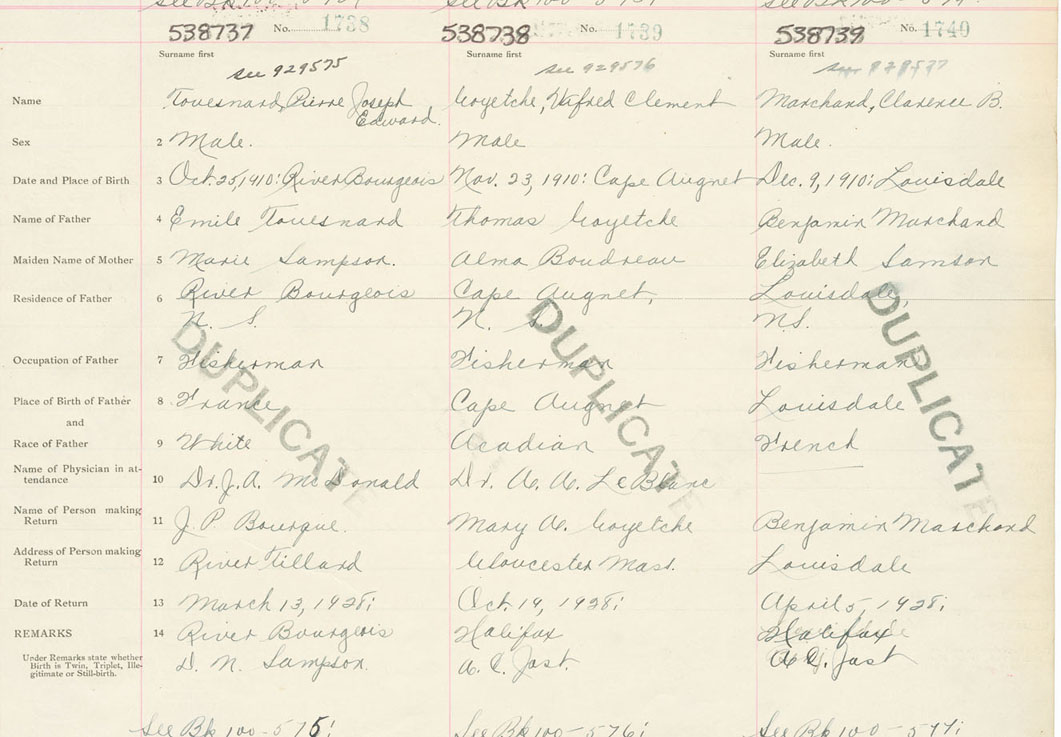 538737 No. 1738 538738 No. 1739 538739 No. 1740
Surname first Surname first Surname first
see 929575 see 929576 see 929577
Name Touesnard, Pierre Joseph Edward. Goyetche, Wifred Clement Marchand, Clarence B.
Sex 2 Male. Male Male.
Date and Place of Birth 3 Oct. 25, 1910: River Bourgeois Nov. 23, 1910: Cape Augnet Dec. 9, 1910: Louisdale
Name of Father 4 Emile Touesnard Thomas Goyetche Benjamin Marchand
Maiden Name of Mother 5 Marie Sampson. Alma Boudreau Elizabeth Samson
Residence of Father 6 River Bourgeois Cape Augnet, Louisdale,
N. S. N. S. N.S.
Occupation of Father 7 Fisherman Fisherman Fisherman
Place of Birth of Father 8 France Cape Augnet Louisdale
and
Race of Father 9 White Acadian French
Name of Physician in at-
tendance 10 Dr. J. A. McDonald Dr. A. A. LeBlanc
Name of Person making
Return 11 J. P. Bourque. Mary A. Goyetche Benjamin Marchand
Address of Person making
Return 12 River Tillard Gloucester Mass. Louisdale
Date of Return 13 March 13, 1928; Oct. 19, 1928; April 5, 1928;
REMARKS 14 River Bourgeois Halifax Halifax
Under Remarks state whether
Birth is Twin, Triplet, Ille-
gitimate or Still-birth.
D. N. Sampson. A. C. Jost. A. C. Jost
DUPLICATE DUPLICATE DUPLICATE
See Bk 100-575; See Bk 100-576; See Bk 100-577;